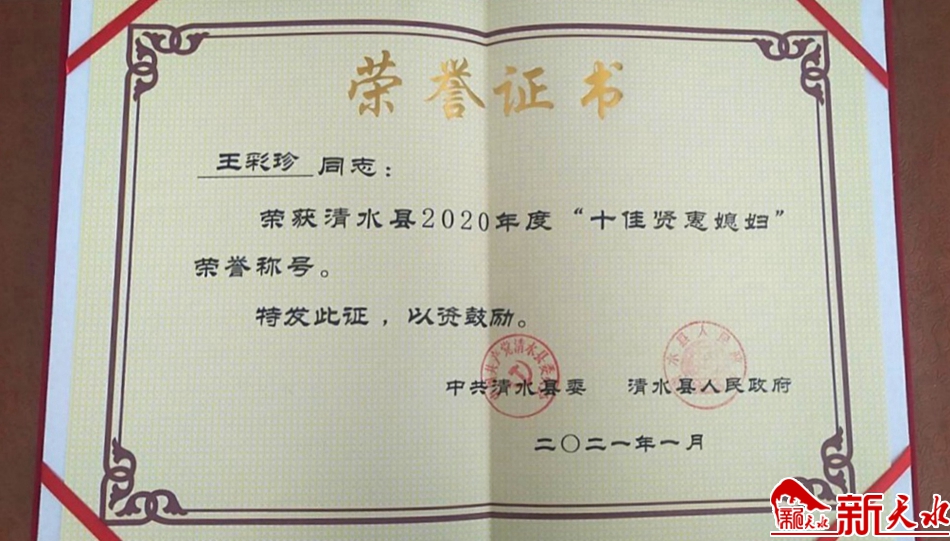 荣誉证书
王彩珍 同志：
荣获清水县2020年度“十佳贤惠媳妇”
荣誉称号。
特发此证，以资鼓励。
中共清水县委 清水县人民政府
二〇二一年一月
新天水